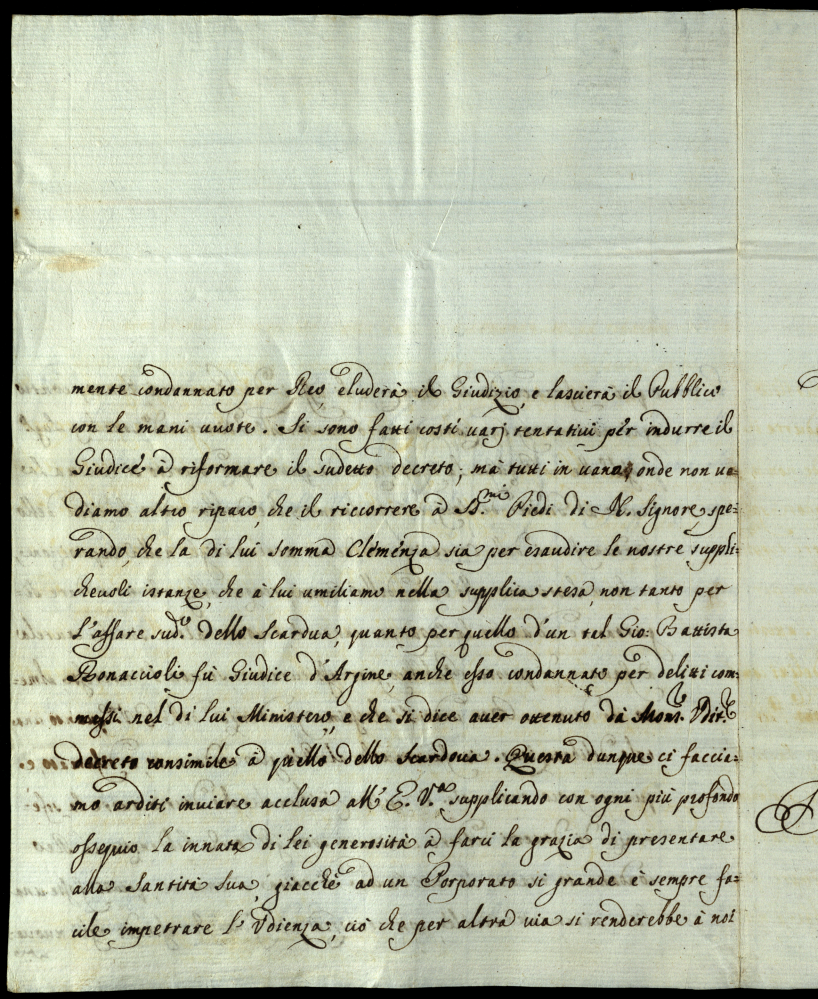 mente condannato per Reo, eluderà il Giudizio, e lascierà il Pubblico
con le mani vuote. Si sono fatti costì varj tentativi per indurre il
Giudice à riformare il sudetto decreto, mà tutti in vano, onde non ve=
diamo altro riparo, che il riccorrere à SS.mi Piedi di N. Signore, spe=
rando, che la di lui somma Clemenza sia per esaudire le nostre suppli=
chevoli istanze, che à lui umiliamo nella supplica stesa, non tanto per
l'affare sud.o dello Scardua, quanto per quello d'un tal Gio: Battista
Bonaccioli fù Giudice d'Argine, anche esso condannato per delitti com=
messi nel di lui Ministero, e che si dice aver ottenuto dà Mons.r Udit.e
decreto consimile à quello dello Scardova. Questa dunque ci faccia=
mo arditi inviare acclusa all'E. V.a supplicando con ogni più profondo
ossequio la innata di lei generosità à farci la grazia di presentare
alla Santità Sua, giacchè ad un Porporato sì grande è sempre fa=
cile impetrare l'Udienza, ciò che per altra via si renderebbe à noi